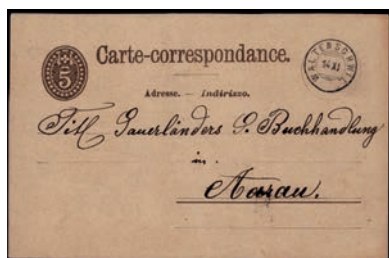 5
Carte-correspondance.
WALTENSCHWIL
14 XI
Adresse. — Indirizzo.
Titl Sauerländers S. Buchhandlung
in
Aarau.